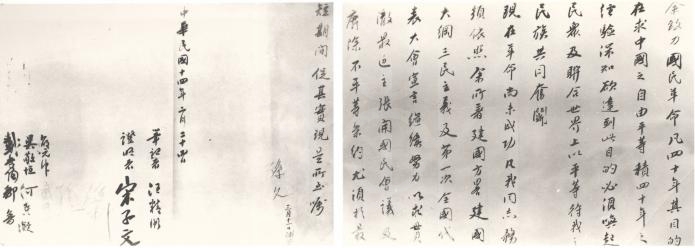 余致力國民革命凡四十年其目的
在求中國之自由平等積四十年之
經驗深知欲達到此目的必須喚起
民眾及聯合世界上以平等待我之
民族共同奮鬥
現在革命尚未成功凡我同志務
須依照余所著建國方略建國
大綱三民主義及第一次全國代
表大會宣言繼續努力以求貫
徹最近主張開國民會議及
廢除不平等條約尤須於最
短期間促其實現是所至囑
孫文
三月十一日補簽
中華民國十四年二月二十四日
筆記者 汪精衛
證明者 宋子文
邵元冲
吳敬恆 何香凝
戴恩賽 鄒魯